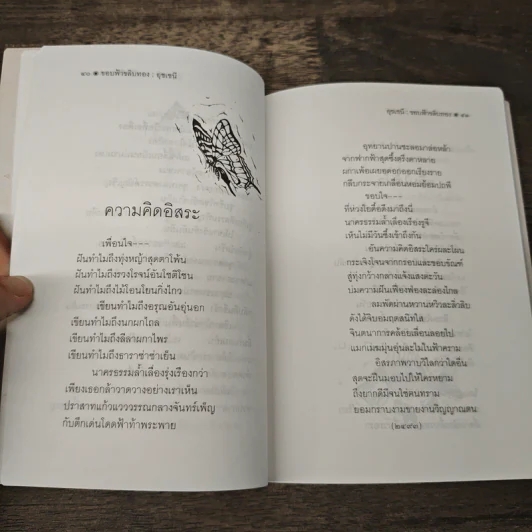 ๒๐ ● ขอบฟ้าขลิบทอง : อุชเชนี
ความคิดอิสระ
เพื่อนใจ---
ฝันทำไมถึงทุ่งหญ้าสุดตาโพ้น
ฝันทำไมถึงรวงโรจน์อันโชติโชน
ฝันทำไมถึงไม้โอนโยนกิ่งไกว
เขียนทำไมถึงอรุณอันอุ่นอก
เขียนทำไมถึงนกผกโถล
เขียนทำไมถึงลีลาผกาไพร
เขียนทำไมถึงธาราซ่าซ่าเย็น
นาครธรรมล้ำเลื่องรุ่งเรืองกว่า
เพียงเธอกล้าวาดวางอย่างเราเห็น
ปราสาทแก้วแวววรรณกลางจันทร์เพ็ญ
กับตึกเด่นโดดฟ้าท้าพระพาย
อุชเชนี : ขอบฟ้าขลิบทอง ●
อุทยานปานชะลอมาล่อหล้า
จากฟากฟ้าสุดซึ้งตรึงตาหลาย
ผกาเพ้อเผยอดอกออกเรียงราย
กลีบกระจายเกลื่อนหอมอ้อมปะพี
ขอบใจ---
ที่ห่วงใยคือดึงมาถึงนี่
นาครธรรมล้ำเลื่องเรืองรูจี
เห็นไม่มีวันซึ้งเข้าถึงกัน
อันความคิดอิสระใคร่ผละโผน
กระเจิงโจนจากกรอบและขอบขัณฑ์
สู่ทุ่งกว้างกลางแจ้งแสงตะวัน
บ่มความฝันเฟื่องฟ่องละล่องไกล
ลมพัดผ่านหวานหวิวละลิ่วลิบ
ดังได้จิบอมฤตสนิทใส
จินตนาการคล้อยเลื่อนลอยไป
แมกเมฆมุ่นอุ่นละไมในฟ้าคราม
อิสรภาพวาบวิไลกว่าใดอื่น
สุดจะฝืนมอบไปให้ใครหยาม
ถึงยากดีมีจนใช่คนทราม
ยอมกราบงามขายงานวิญญาณตน
(๒๔๙๓)